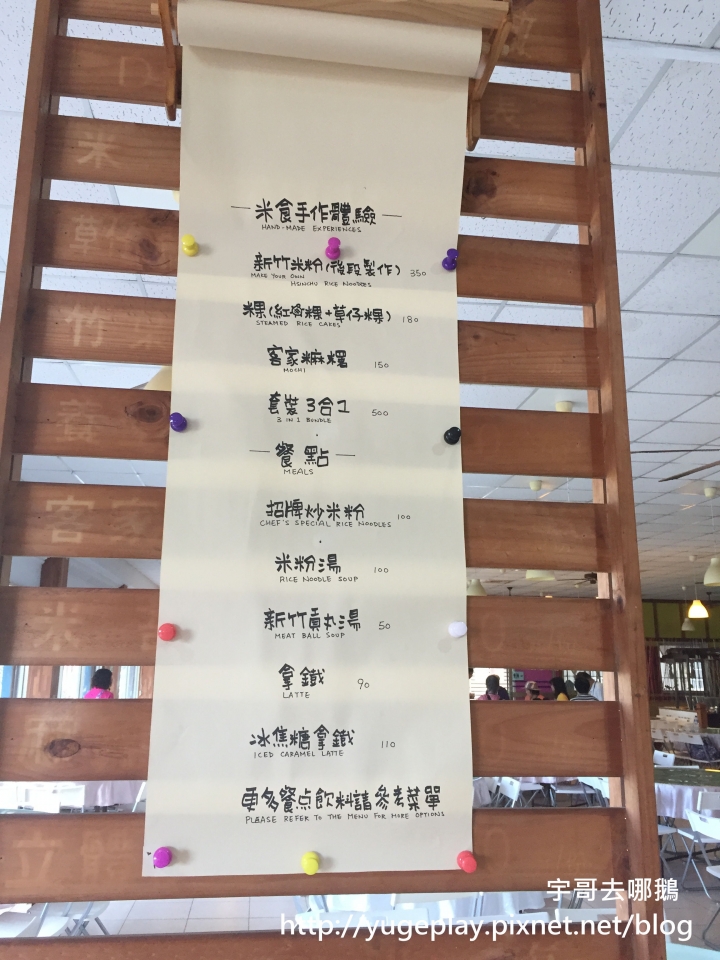 米食手作體驗
HAND-MADE EXPERIENCES
新竹米粉(後段製作) 350
MAKE YOUR OWN
HSINCHU RICE NOODLES
粿(紅龜粿+草仔粿) 180
STEAMED RICE CAKES
客家麻糬 150
MOCHI
套裝3合1 500
3 IN 1 BUNDLE
餐點
MEALS
招牌炒米粉 100
CHEF'S SPECIAL RICE NOODLES
米粉湯 100
RICE NOODLE SOUP
新竹貢丸湯 50
MEAT BALL SOUP
拿鐵 90
LATTE
冰焦糖拿鐵 110
ICED CARAMEL LATTE
更多餐点飲料請參考菜單
PLEASE REFER TO THE MENU FOR MORE OPTIONS
宇哥去哪鵝
http://yugeplay.pixnet.net/blog